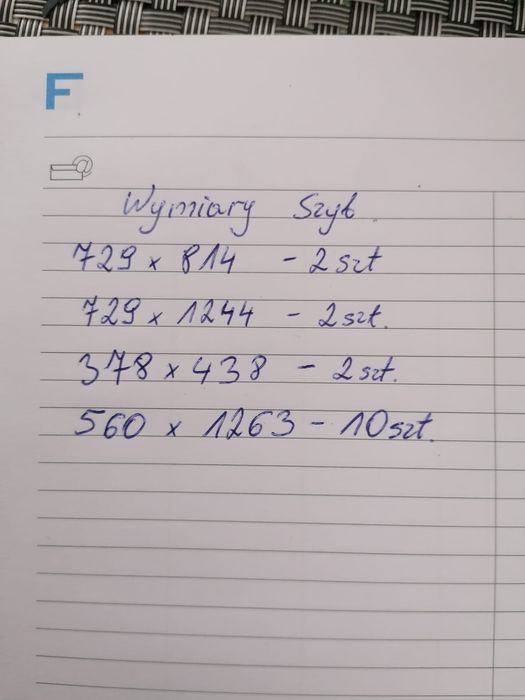 F
@
Wymiary Szyb
729 x 814 - 2 szt
729 x 1244 - 2 szt.
378 x 438 - 2 szt.
560 x 1263 - 10 szt.